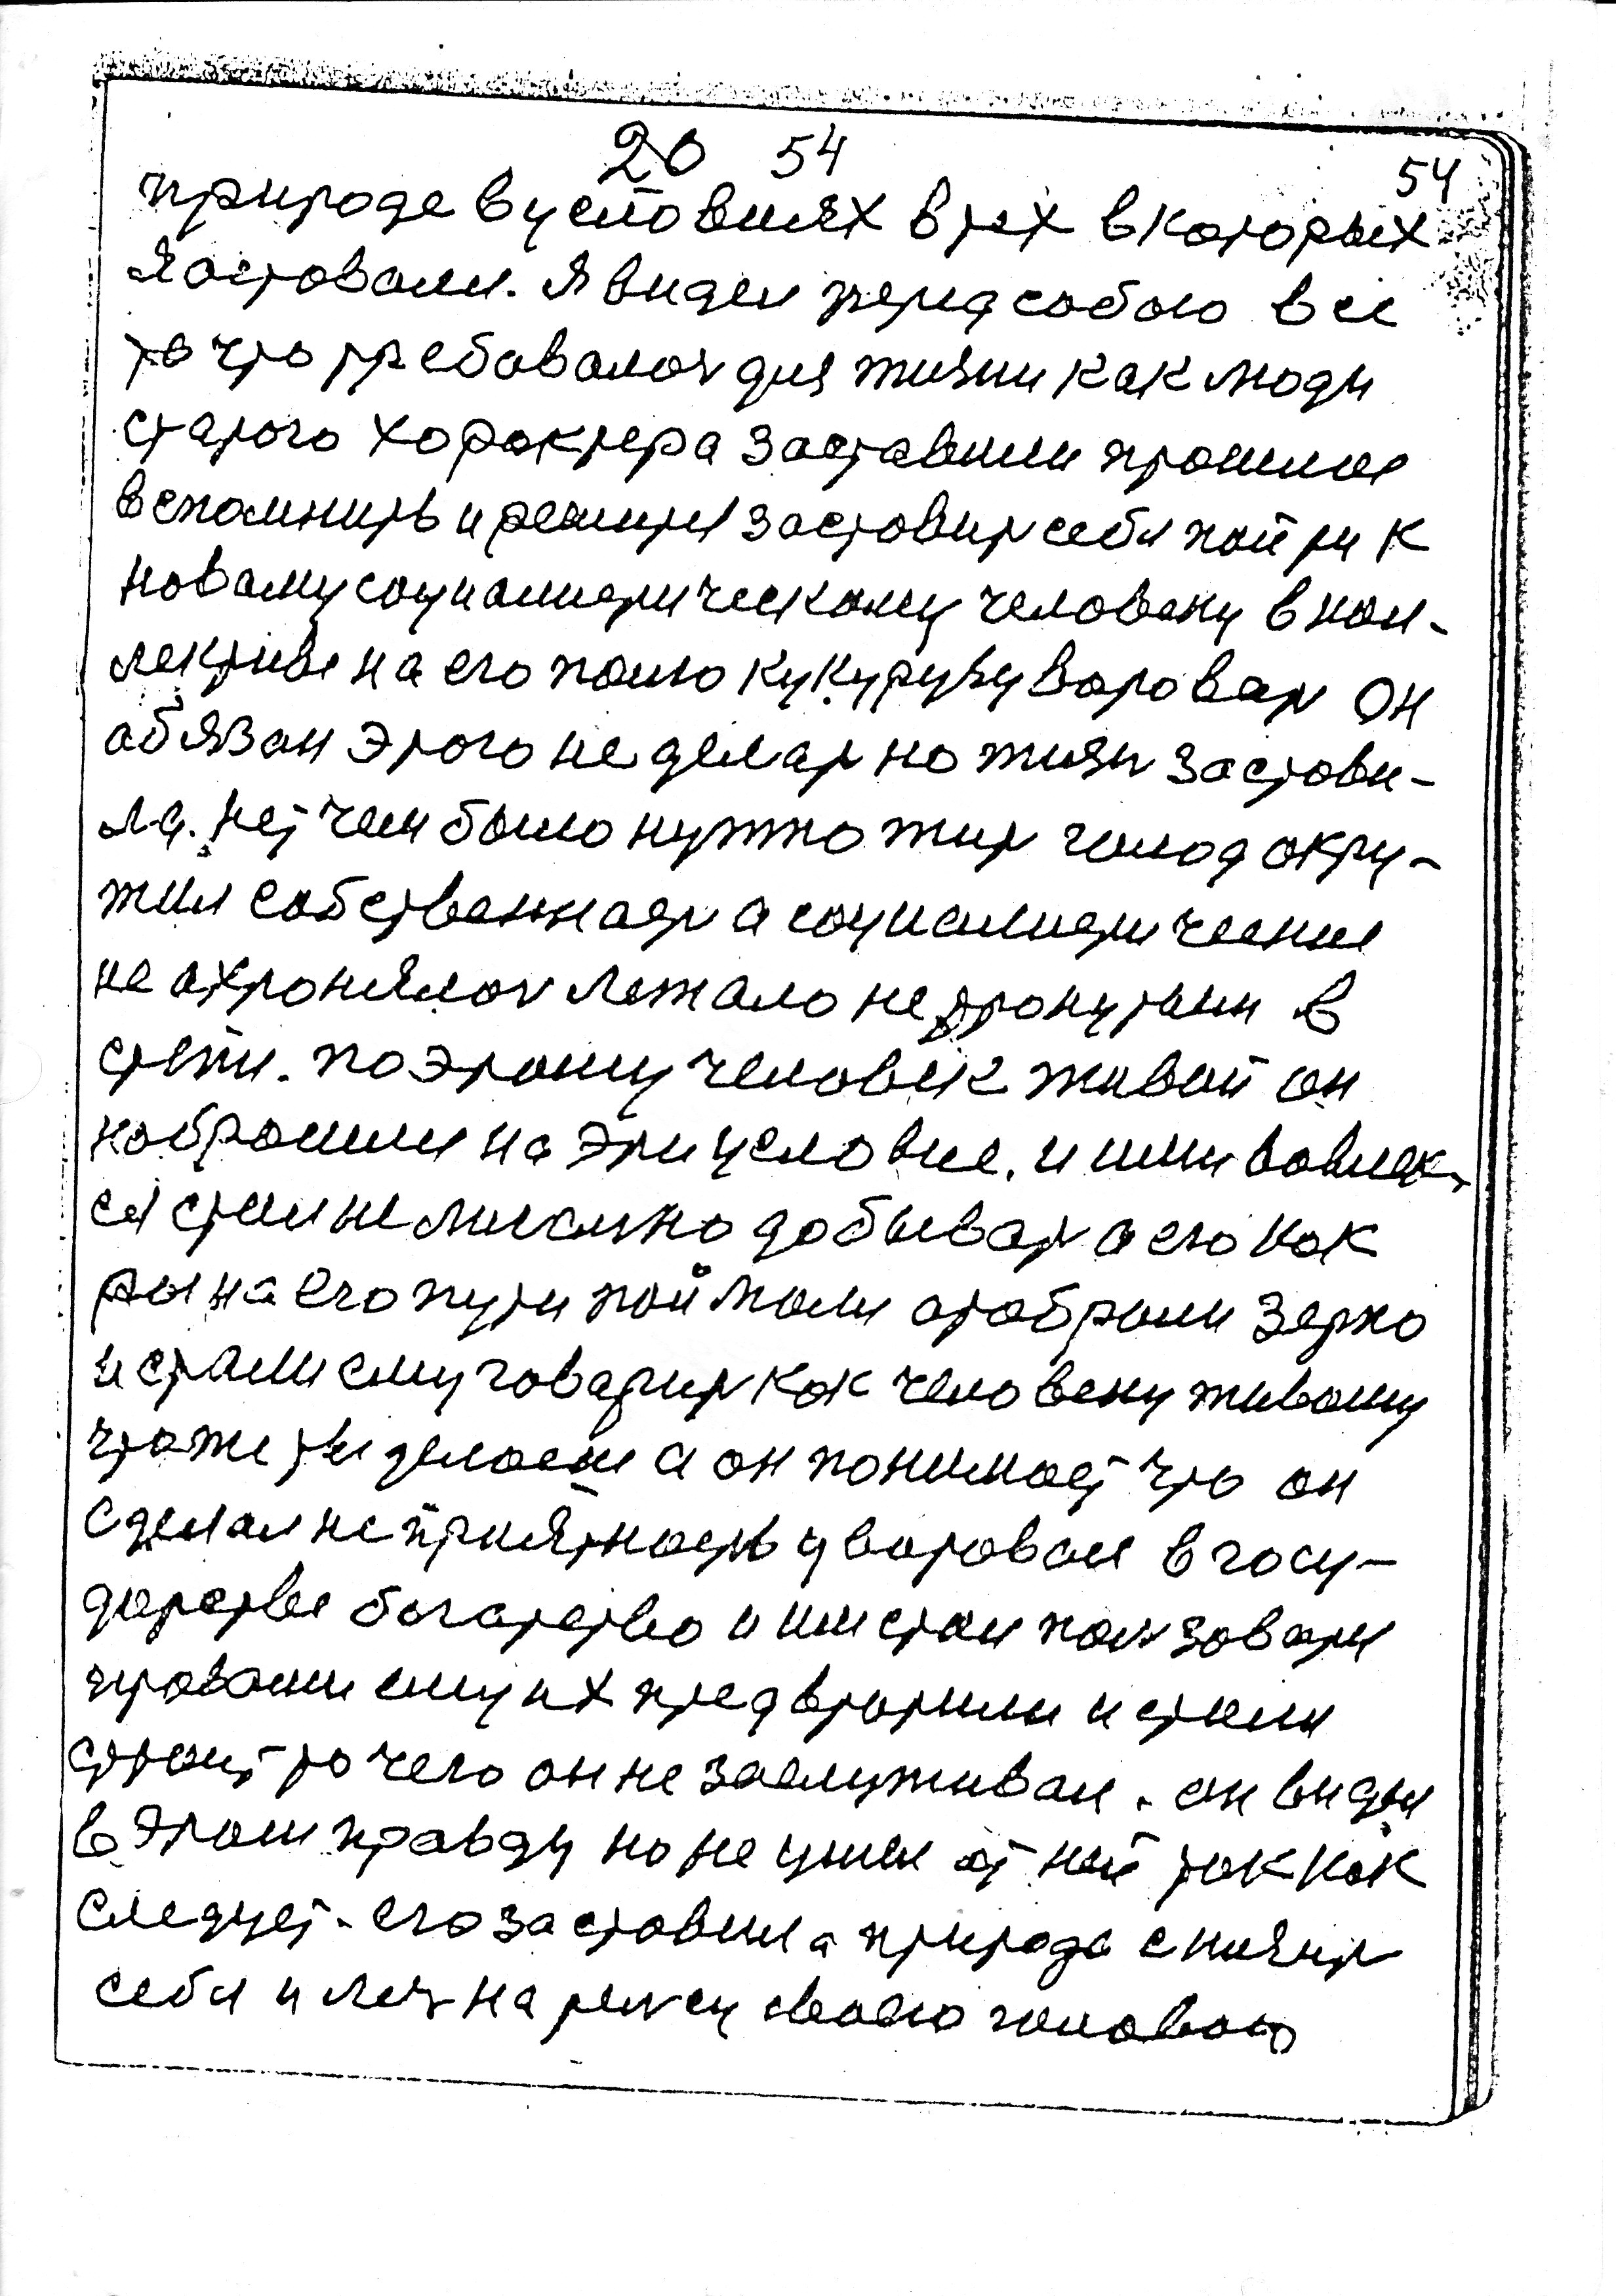 20 54 54
природе в условиях в тех в которых
я оставался. Я видел перед собою все
то что требовалось для жизни как люди
старого характера заставили прошлое
вспомнить и решил заставить себя пойти к
новаму социалистическому человеку в кол-
лективе на его полю кукурузу воровать он
абязан этого не делать но жизнь застови-
ла. нет чем было нужно жить голод окру-
жил собственность а социалистические
не ахронялось лежало не тронутым в
степи. поэтому человек живой он
набрал на эти условие. и ими вовлек-
ся стал не легально добывать а его как
на его пути поймали атобрали зерно
и стали ему говарить как человеку живому
что же ты делаеш а он понимает что он
сделал неприятность уваровал в госу-
дарстве богатство и им стал пользоватя
правами ему их предвторили и стали
строит то чего он не заслуживал. он видел
в этом правду но не ушел от ней так как
следует. его заставила природа снизить
себя и леч на рельсу своею головою